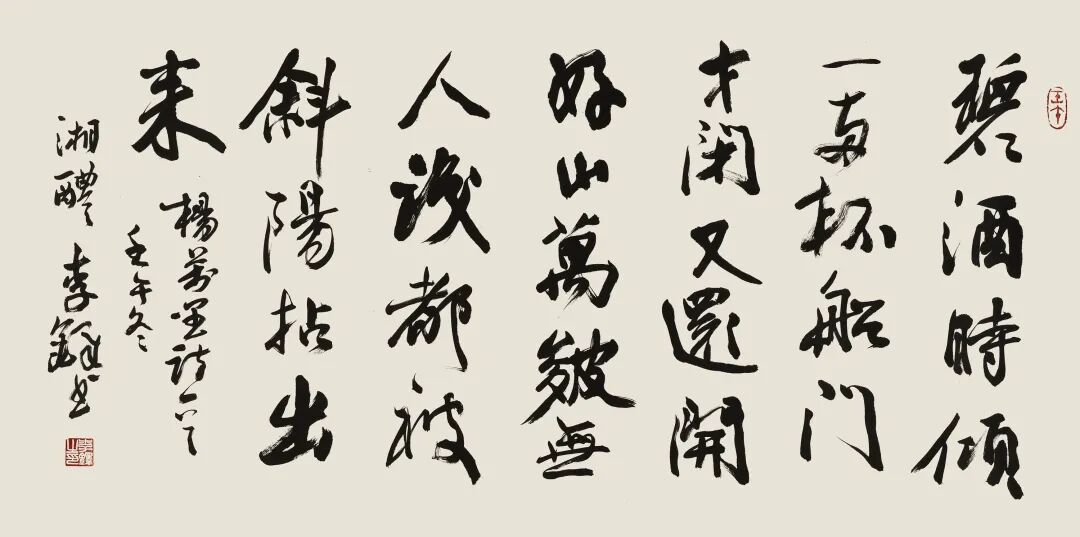 碧酒時傾
一两杯船门
才闭又還開
好山萬皺無
人識都被
斜陽拈出
来
楊萬里詩一首
壬午冬
湘醴李鐸书